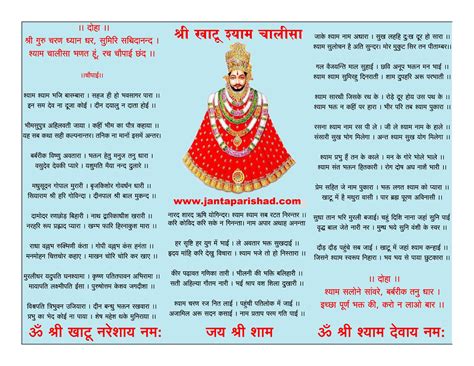 श्री खाटू श्याम चालीसा
।। दोहा ।।
श्री गुरु चरण ध्यान धर, सुमिरि सच्चिदानन्द ।
श्याम चालीसा भणत हूं, रच चौपाई छंद ।।
।।चौपाई।।
श्याम श्याम भजि बारम्बारा । सहज ही हो भवसागर पारा ।।
इन सम देव ना दूजा कोई । दीन दयालु न दाता होई ।।
भीमसुपुत्र अहिलवती जाया । कहीं भीम का पौत्र कहाया ।।
यह सब कथा सही कल्पान्तर। तनिक ना मानों इसमें अन्तर।।
बर्बरीक विष्णु अवतारा । भक्तन हेतु मनुज तनु धारा ।।
वसुदेव देवकी प्यारे । यशुमति मैया नन्द दुलारे ।।
मधुसूदन गोपाल मुरारी । बृजकिशोर गोवर्धन धारी ।।
सियाराम श्री हरि गोविन्दा । दीनपाल श्री बाल मुकुन्दा ।।
दामोदर रणछोड़ बिहारी । नाथ द्वारिकाधीश खरारी ।।
नरहरि रूप प्रहलाद प्यारा । खम्भ फारि हिरनाकुश मारा ।।
राधा वल्लभ रुक्मिणी कंता । गोपी वल्लभ कंस हनंता ।।
मनमोहन चितचोर कहाए । माखन चोरि चोरि कर खाए ।।
मुरलीधर यदुपति घनश्याम । कृष्ण पतितपावन अभिरामा ।।
मायापति लक्ष्मीपति ईसा । पुरुषोत्तम केशव जगदीशा ।।
विश्वपति त्रिभुवन उजियारा । दीन बन्धु भक्तन रखवारा ।।
प्रभु का भेद कोई ना पाया । शेष महेश थके मुनिराया ।।
www.jantaparishad.com
नारद शारद ऋषि योगिन्दर। श्याम श्याम सब रटत निरन्तर ।।
करि कोविद करि सके न गिनन्ता। नाम अपार अथाह अनन्ता
हर सृष्टि हर युग में भाई । ले अवतार भक्त सुखदाई ।।
हृदय मांहि करि देखु विचारा । श्याम भजे तो हो निस्तारा ।।
कीर पढ़ावत गणिका तारी । भीलनी की भक्ति बलिहारी ।।
सती अहिल्या गौतम नारी । भई श्राप वश शिला दुखारी ।।
श्याम चरण रज नित लाई । पहुंची पतिलोक में जाई ।।
अजामिल अरु सदन कसाई । नाम प्रताप परम गति पाई ।।
जाके श्याम नाम अधारा । सुख लहहि दुःख दूर हो सारा ।।
श्याम सुलोचन है अति सुन्दर। मोर मुकुट सिर तन पीताम्बर।।
गल वैजयन्ति माल सुहाई । छवि अनूप भक्तन मन भाई ।।
श्याम श्याम सुमिरहु दिनराती । शाम दुपहरि अरु परभाती ।।
श्याम सारथी जिसके रथ के । रोड़े दूर होय उस पथ के ।।
श्याम भक्त न कहीं पर हारा । भीर परि तब श्याम पुकारा ।।
रसना श्याम नाम रस पी ले । जी ले श्याम नाम के हाले ।।
संसारी सुख भोग मिलेगा । अन्त श्याम सुख योग मिलेगा ।।
श्याम प्रभु हैं तन के काले । मन के गोरे भोले भाले ।।
श्याम संत भक्तन हितकारी । रोग दोष अघ नाशै भारी ।।
प्रेम सहित जे नाम पुकारा । भक्त लगत श्याम को प्यारा ।।
खाटू में है मथुरा वासी । पार ब्रह्म पूरण अविनासी ।।
सुधा तान भरि मुरली बजाई। चहुं दिशि नाना जहां सुनि पाई।
वृद्ध बाल जेते नारी नर । मुग्ध भये सुनि वंशी के स्वर ।।
दौड़ दौड़ पहुंचे सब जाई । खाटू में जहां श्याम कन्हाई ।।
जिसने श्याम स्वरूप निहारा । भव भय से पाया छुटकारा ।।
।। दोहा ।।
श्याम सलोने सांवरे, बर्बरीक तनु धार ।
इच्छा पूर्ण भक्त की, करो न लाओ बार ।।
ॐ श्री खाटू नरेशाय नमः
जय श्री शाम
ॐ श्री श्याम देवाय नमः